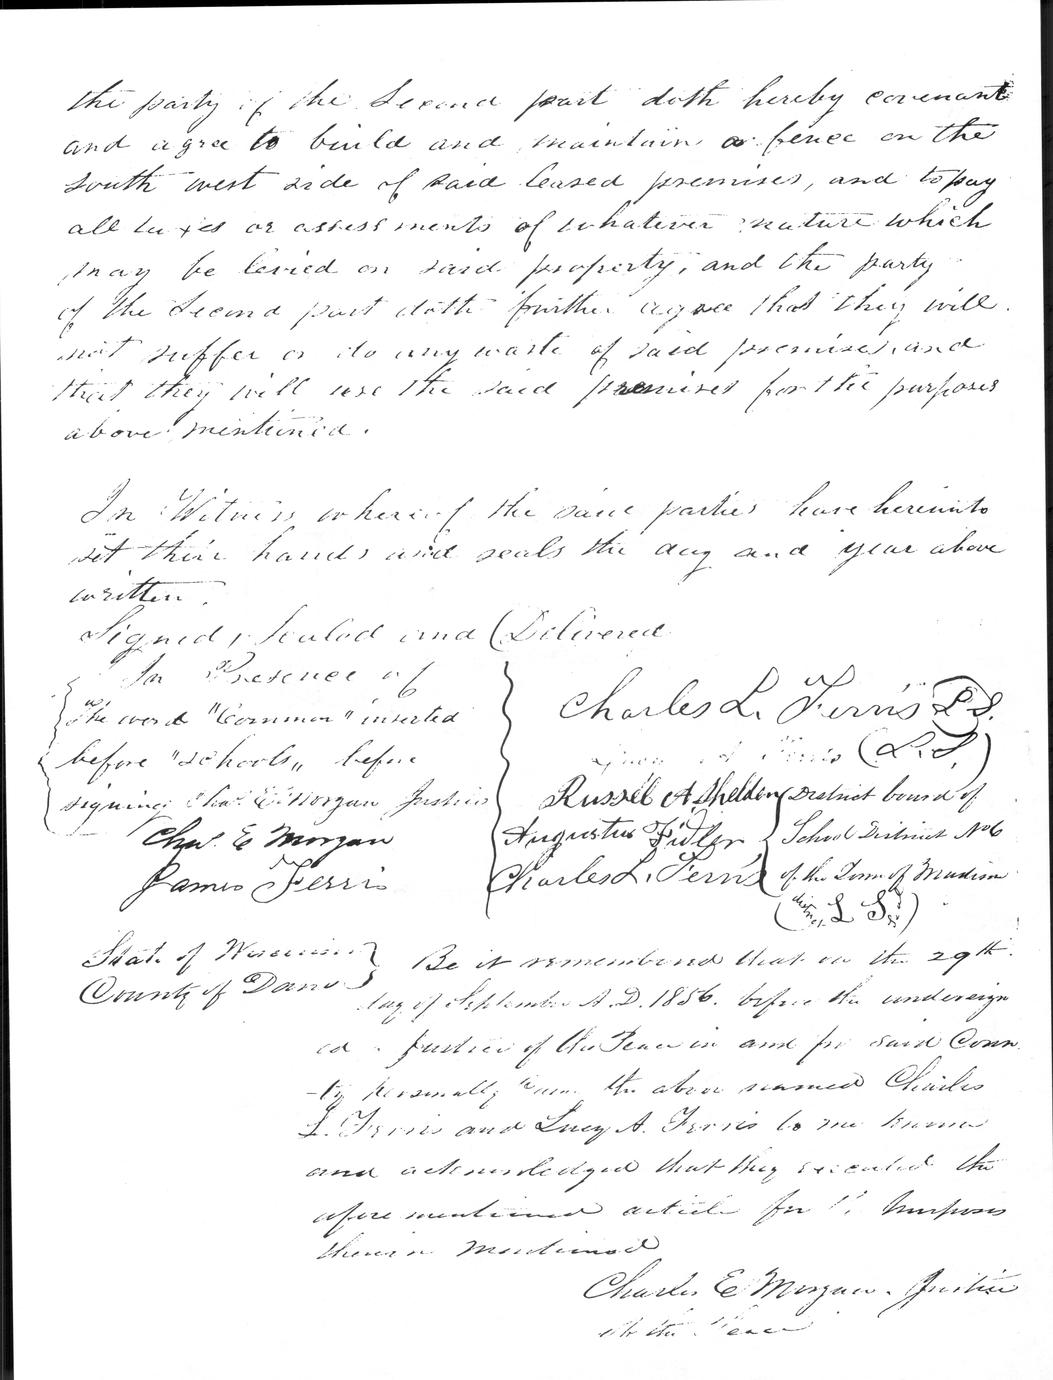 the party of the Second part doth hereby covenant
and agree to build and maintain a fence on the
south west side of said leased premises, and to pay
all taxes or assessments of whatever nature which
may be levied on said property, and the party
of the Second part doth further agree that they will
not suffer or do any waste of said premises, and
that they will use the said premises for the purposes
above mentioned.
In Witness whereof the said parties have hereunto
set their hands and seals the day and year above
written.
Signed, Sealed and Delivered
In Presence of
The word "Common" inserted
before "schools" before
signing Chas. E. Morgan Justice
Chas. E Morgan
James Ferris
Charles L. Ferris L.S.
Lucy A Ferris (L.S.)
Russel A Sheldon
Augustus Fidler
Charles L. Ferris
District board of
School District No 6
of the Town of Madison
(L S)
State of Wisconsin
County of Dane
Be it remembered that on the 29th
day of September A.D. 1856. before the undersign
ed Justice of the Peace in and for said Coun
-ty personally came the above named Charles
L. Ferris and Lucy A. Ferris to me known
and acknowledged that they executed the
afore mentioned article for the purposes
therein mentioned
Charles E Morgan. Justice
of the Peace